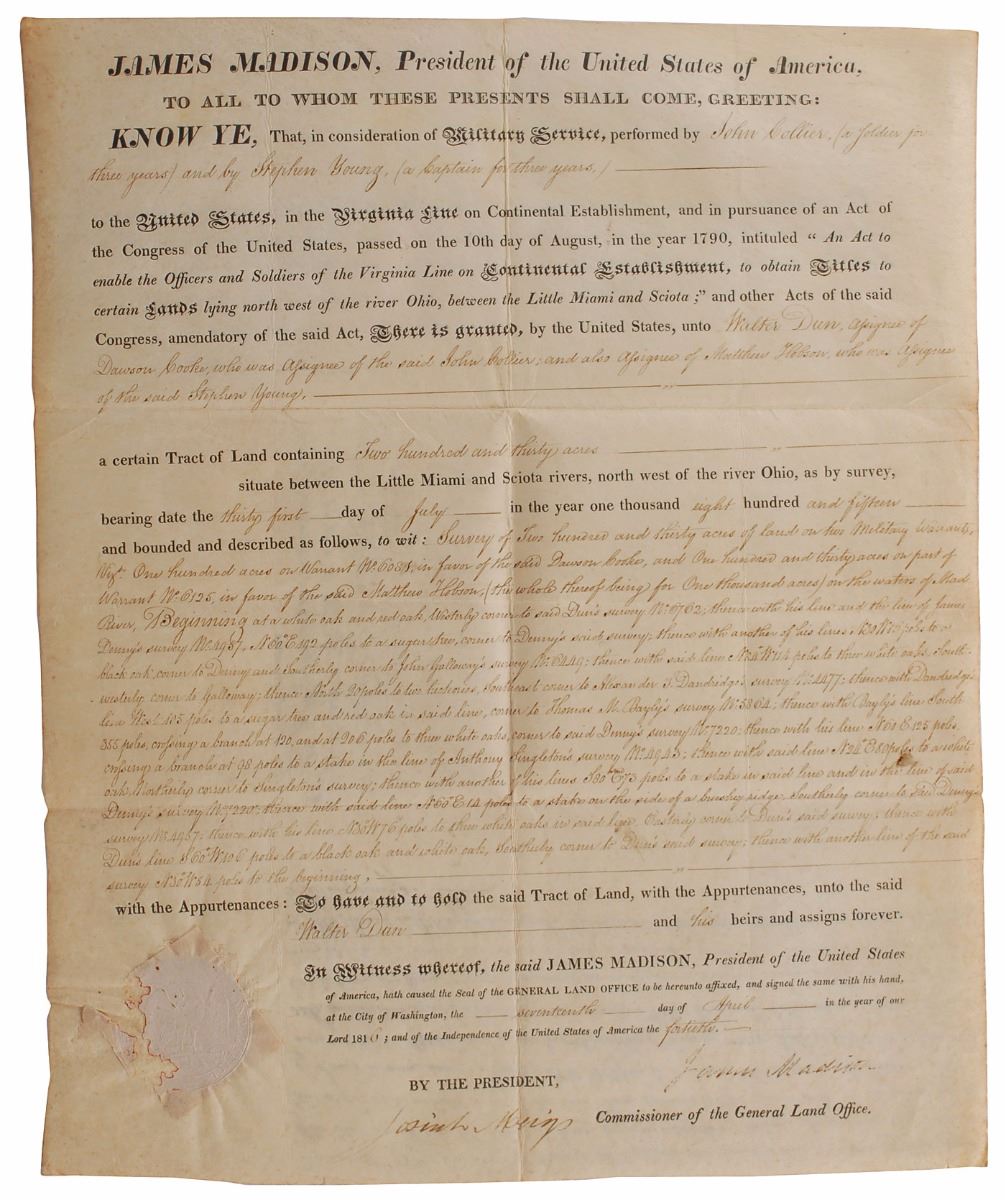 JAMES MADISON, President of the United States of America,
TO ALL TO WHOM THESE PRESENTS SHALL COME, GREETING:
KNOW YE, That, in consideration of Military Service, performed by John Collier, (a Soldier for
three years) and by Stephen Young, (a Captain for three years,)
to the United States, in the Virginia Line on Continental Establishment, and in pursuance of an Act of
the Congress of the United States, passed on the 10th day of August, in the year 1790, intituled “ An Act to
enable the Officers and Soldiers of the Virginia Line on Continental Establishment, to obtain Titles to
certain Lands lying north west of the river Ohio, between the Little Miami and Sciota ;” and other Acts of the said
Congress, amendatory of the said Act, There is granted, by the United States, unto Walter Dun, assignee of
Dawson Cooke, who was assignee of the said John Collier; and also assignee of Matthew Hobson, who was assignee
of the said Stephen Young,
a certain Tract of Land containing Two hundred and thirty acres
situate between the Little Miami and Sciota rivers, north west of the river Ohio, as by survey,
bearing date the thirty first day of July in the year one thousand eight hundred and fifteen
and bounded and described as follows, to wit : Survey of Two hundred and thirty acres of land on two Military Warrants,
Vizt. One hundred acres on Warrant in favor of the said Dawson Cooke, and One hundred and thirty acres on part of
Warrant No. 6125, in favor of the said Matthew Hobson, (the whole thereof being for One thousand acres) on the waters of Mad
River, Beginning at a white oak and red oak, Westerly corner to said Dun's survey No. 6762; thence with his line and the line of James
Denny's survey poles to a sugar tree, corner to Denny's said survey; thence with another of his lines poles to a
black oak, corner to Denny and Southerly corner to John Galloway's survey No. 6449; thence with said line poles to three white oaks, South-
westerly corner to Galloway; thence North 20 poles to two hickories, Southeast corner to Alexander Dandridge's survey No. 4477; thence with Dandridge's
line West 105 poles to a sugar tree and red oak in said line, corner to Thomas M. Bayly's survey No. 5864; thence with Bayly's line South
355 poles, crossing a branch at 120, and at 206 poles to three white oaks, corner to said Denny's survey No. 7220; thence with his line poles,
crossing a branch at 98 poles to a stake in the line of Anthony Singleton's survey thence with said line poles to a white
oak, Northerly corner to Singleton's survey; thence with another of his lines poles to a stake in said line and in the line of said
Denny's survey No. 7220; thence with said line poles to a stake on the side of a brushy ridge, Southerly corner to Denny's
survey thence with his line poles to three white oaks in said line, Easterly corner to Dun's said survey; thence with
Dun's line poles to a black oak and white oak, Southerly corner to Dun's said survey; thence with another line of the said
survey poles to the beginning,
with the Appurtenances : To have and to hold the said Tract of Land, with the Appurtenances, unto the said
Walter Dun and his heirs and assigns forever.
In Witness whereof, the said JAMES MADISON, President of the United States
of America, hath caused the Seal of the GENERAL LAND OFFICE to be hereunto affixed, and signed the same with his hand,
at the City of Washington, the seventeenth day of April in the year of our
Lord 1816 ; and of the Independence of the United States of America the fortieth.
James Madison
BY THE PRESIDENT,
Josiah Meigs Commissioner of the General Land Office.